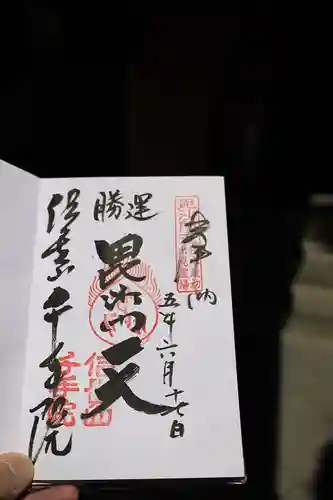 奉納
五年六月十七日
勝運
毘沙門天
信貴山千手院
信貴山
千手院